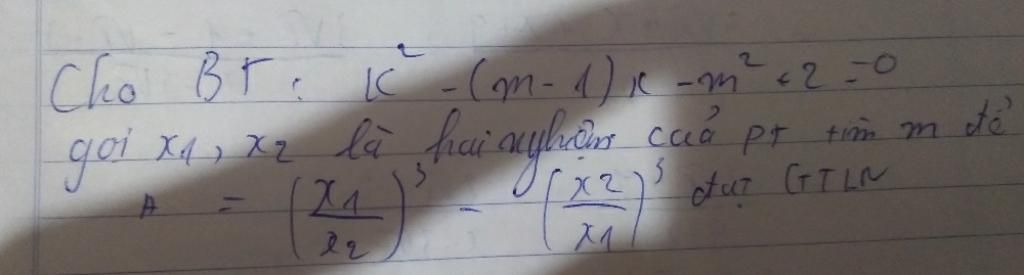 Cho BT: x² - (m - 1)x - m² + 2 = 0
gọi x1, x2 là hai nghiệm của pt tìm m để
A = (x1/x2)³ - (x2/x1)³ đạt GTLN